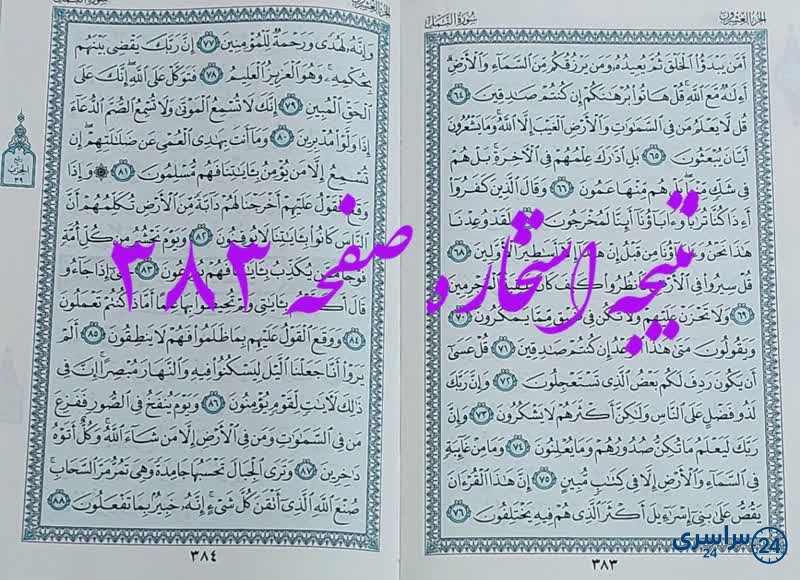 الجزء العشرون
سورة النمل
أمن يبدؤا الخلق ثم يعيده ومن يرزقكم من السماء والأرض
أءله مع الله قل هاتوا برهانكم إن كنتم صادقين ٦٤
قل لا يعلم من في السموات والأرض الغيب إلا الله وما يشعرون
أيان يبعثون ٦٥ بل ادرك علمهم في الآخرة بل هم
في شك منها بل هم منها عمون ٦٦ وقال الذين كفروا
أءذا كنا ترابا وءاباؤنا أئنا لمخرجون لقد وعدنا
هذا نحن وءاباؤنا من قبل إن هذا إلا أسطير الأولين ٦٨
قل سيروا في الأرض فانظروا كيف كان عقبة المجرمين
٦٩ ولا تحزن عليهم ولا تكن في ضيق مما يمكرون ٧٠
ويقولون متى هذا الوعد إن كنتم صدقين ٧١ قل عسى
أن يكون ردف لكم بعض الذي تستعجلون ٧٢ وإن ربك
لذو فضل على الناس ولكن أكثرهم لا يشكرون ٧٣ وإن
ربك ليعلم ما تكن صدورهم وما يعلنون ٧٤ وما من غائبة
في السماء والأرض إلا في كتاب مبين ٧٥ إن هذا القرءان
يقص على بني إسرءيل أكثر الذي هم فيه يختلفون ٧٦
٣٨٣
سورة النمل
الجزء العشرون
وإنه لهدى ورحمة للمؤمنين ٧٧ إن ربك يقضي بينهم
بحكمه وهو العزيز العليم ٧٨ فتوكل على الله إنك على
الحق المبين ٧٩ إنك لا تسمع الموتى ولا تسمع الصم الدعاء
إذا ولوا مدبرين ٨٠ وما أنت بهدي العمي عن ضللتهم إن
تسمع إلا من يؤمن بءايتنا فهم مسلمون ٨١ وإذا
وقع القول عليهم أخرجنا لهم دابة من الأرض تكلمهم أن
الناس كانوا بءايتنا لا يوقنون ٨٢ ويوم نحشر من كل أمة
فوجا ممن يكذب بءايتنا فهم يوزعون ٨٣ حتى إذا جاءو
قال أكذبتم بءايتي ولم تحيطوا بها علما أماذا كنتم تعملون
٨٤ ووقع القول عليهم بما ظلموا فهم لا ينطقون ٨٥ ألم
يروا أنا جعلنا الليل ليسكنوا فيه والنهار مبصرا إن في
ذلك لآيت لقوم يؤمنون ٨٦ ويوم ينفخ في الصور ففزع
من في السموت ومن في الأرض إلا من شاء الله وكل أتوه
داخرين ٨٧ وترى الجبال تحسبها جامدة وهي تمر مر السحاب
صنع الله الذي أتقن كل شيء إنه خبير بما تفعلون ٨٨
٣٨٤
ربع
الحزب
٣٩
نتیجه استخاره صفحه ۳۸۳
سراسری 24
24